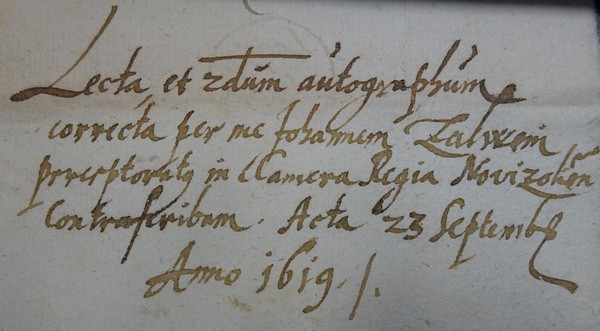 Lecta et 2dum autographum
correcta per me Johannem Zalwem
perceptoratus in Camera Regia Novizolien
Contrascribam. Acta 23 Septemb
Anno 1619 /.